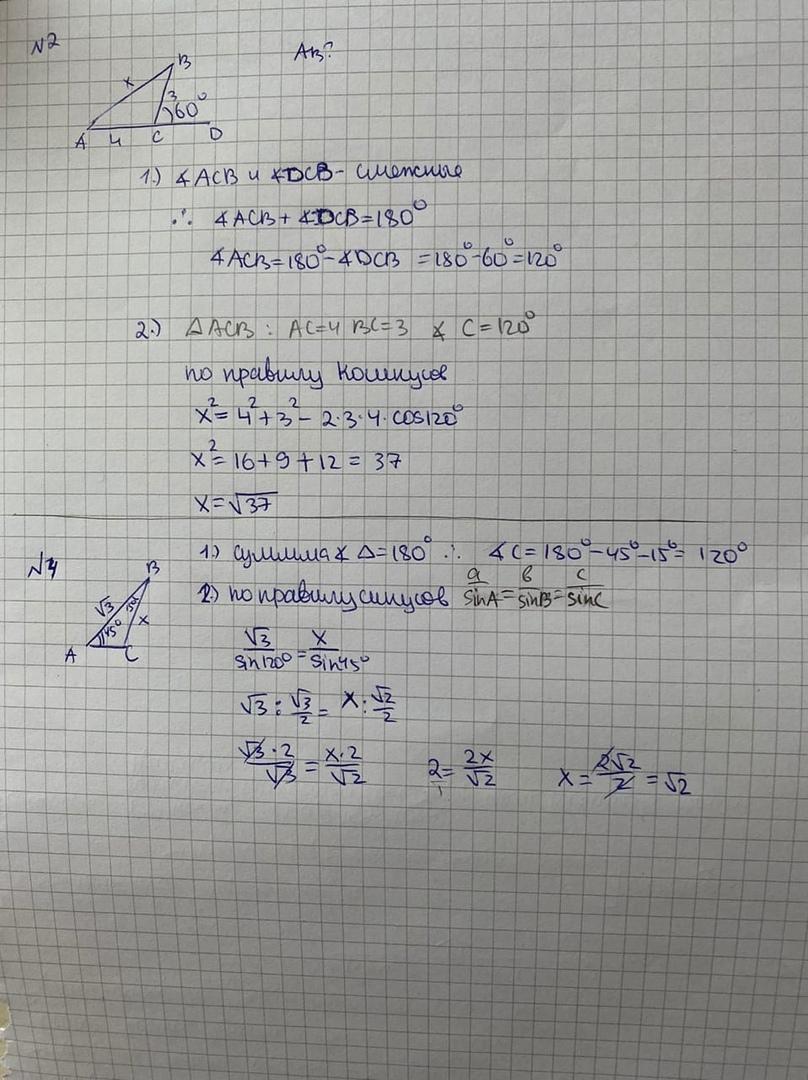 N2
AB?
B
x
3
60°
A 4 C D
1.) ∢ACB и ∢DCB - смежные
∴ ∢ACB + ∢DCB = 180°
∢ACB = 180° - ∢DCB = 180° - 60° = 120°
2.) △ACB : AC=4 BC=3 ∢ C = 120°
по правилу Косинусов
x² = 4² + 3² - 2·3·4·cos120°
x² = 16 + 9 + 12 = 37
x = √37
N4
B
√3 15° x
45°
A C
1.) сумма ∢ △ = 180° ∴ ∢C = 180° - 45° - 15° = 120°
2.) по правилу синусов a/sinA = b/sinB = c/sinC
√3/sin120° = x/sin45°
√3 : √3/2 = x : √2/2
√3·2/√3 = x·2/√2 2/1 = 2x/√2 x = 2√2/2 = √2